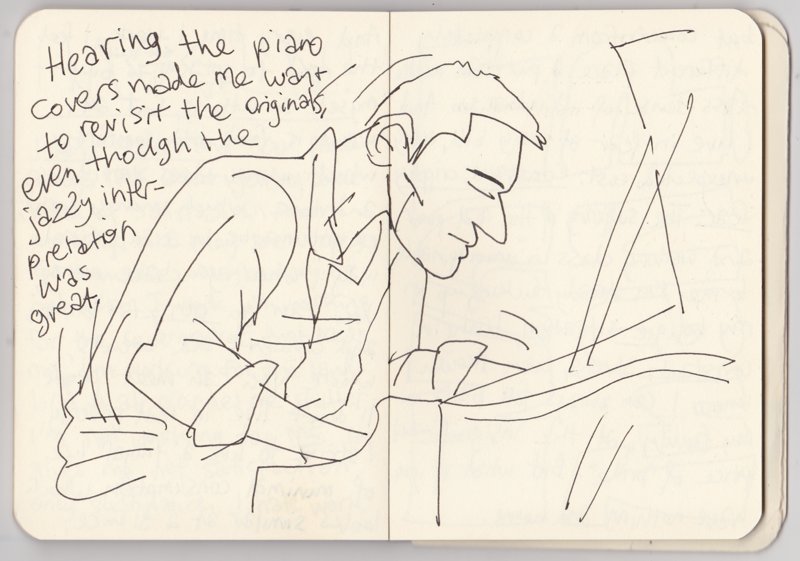 Hearing the piano
covers made me want
to revisit the originals,
even though the
jazzy inter-
pretation
was
great